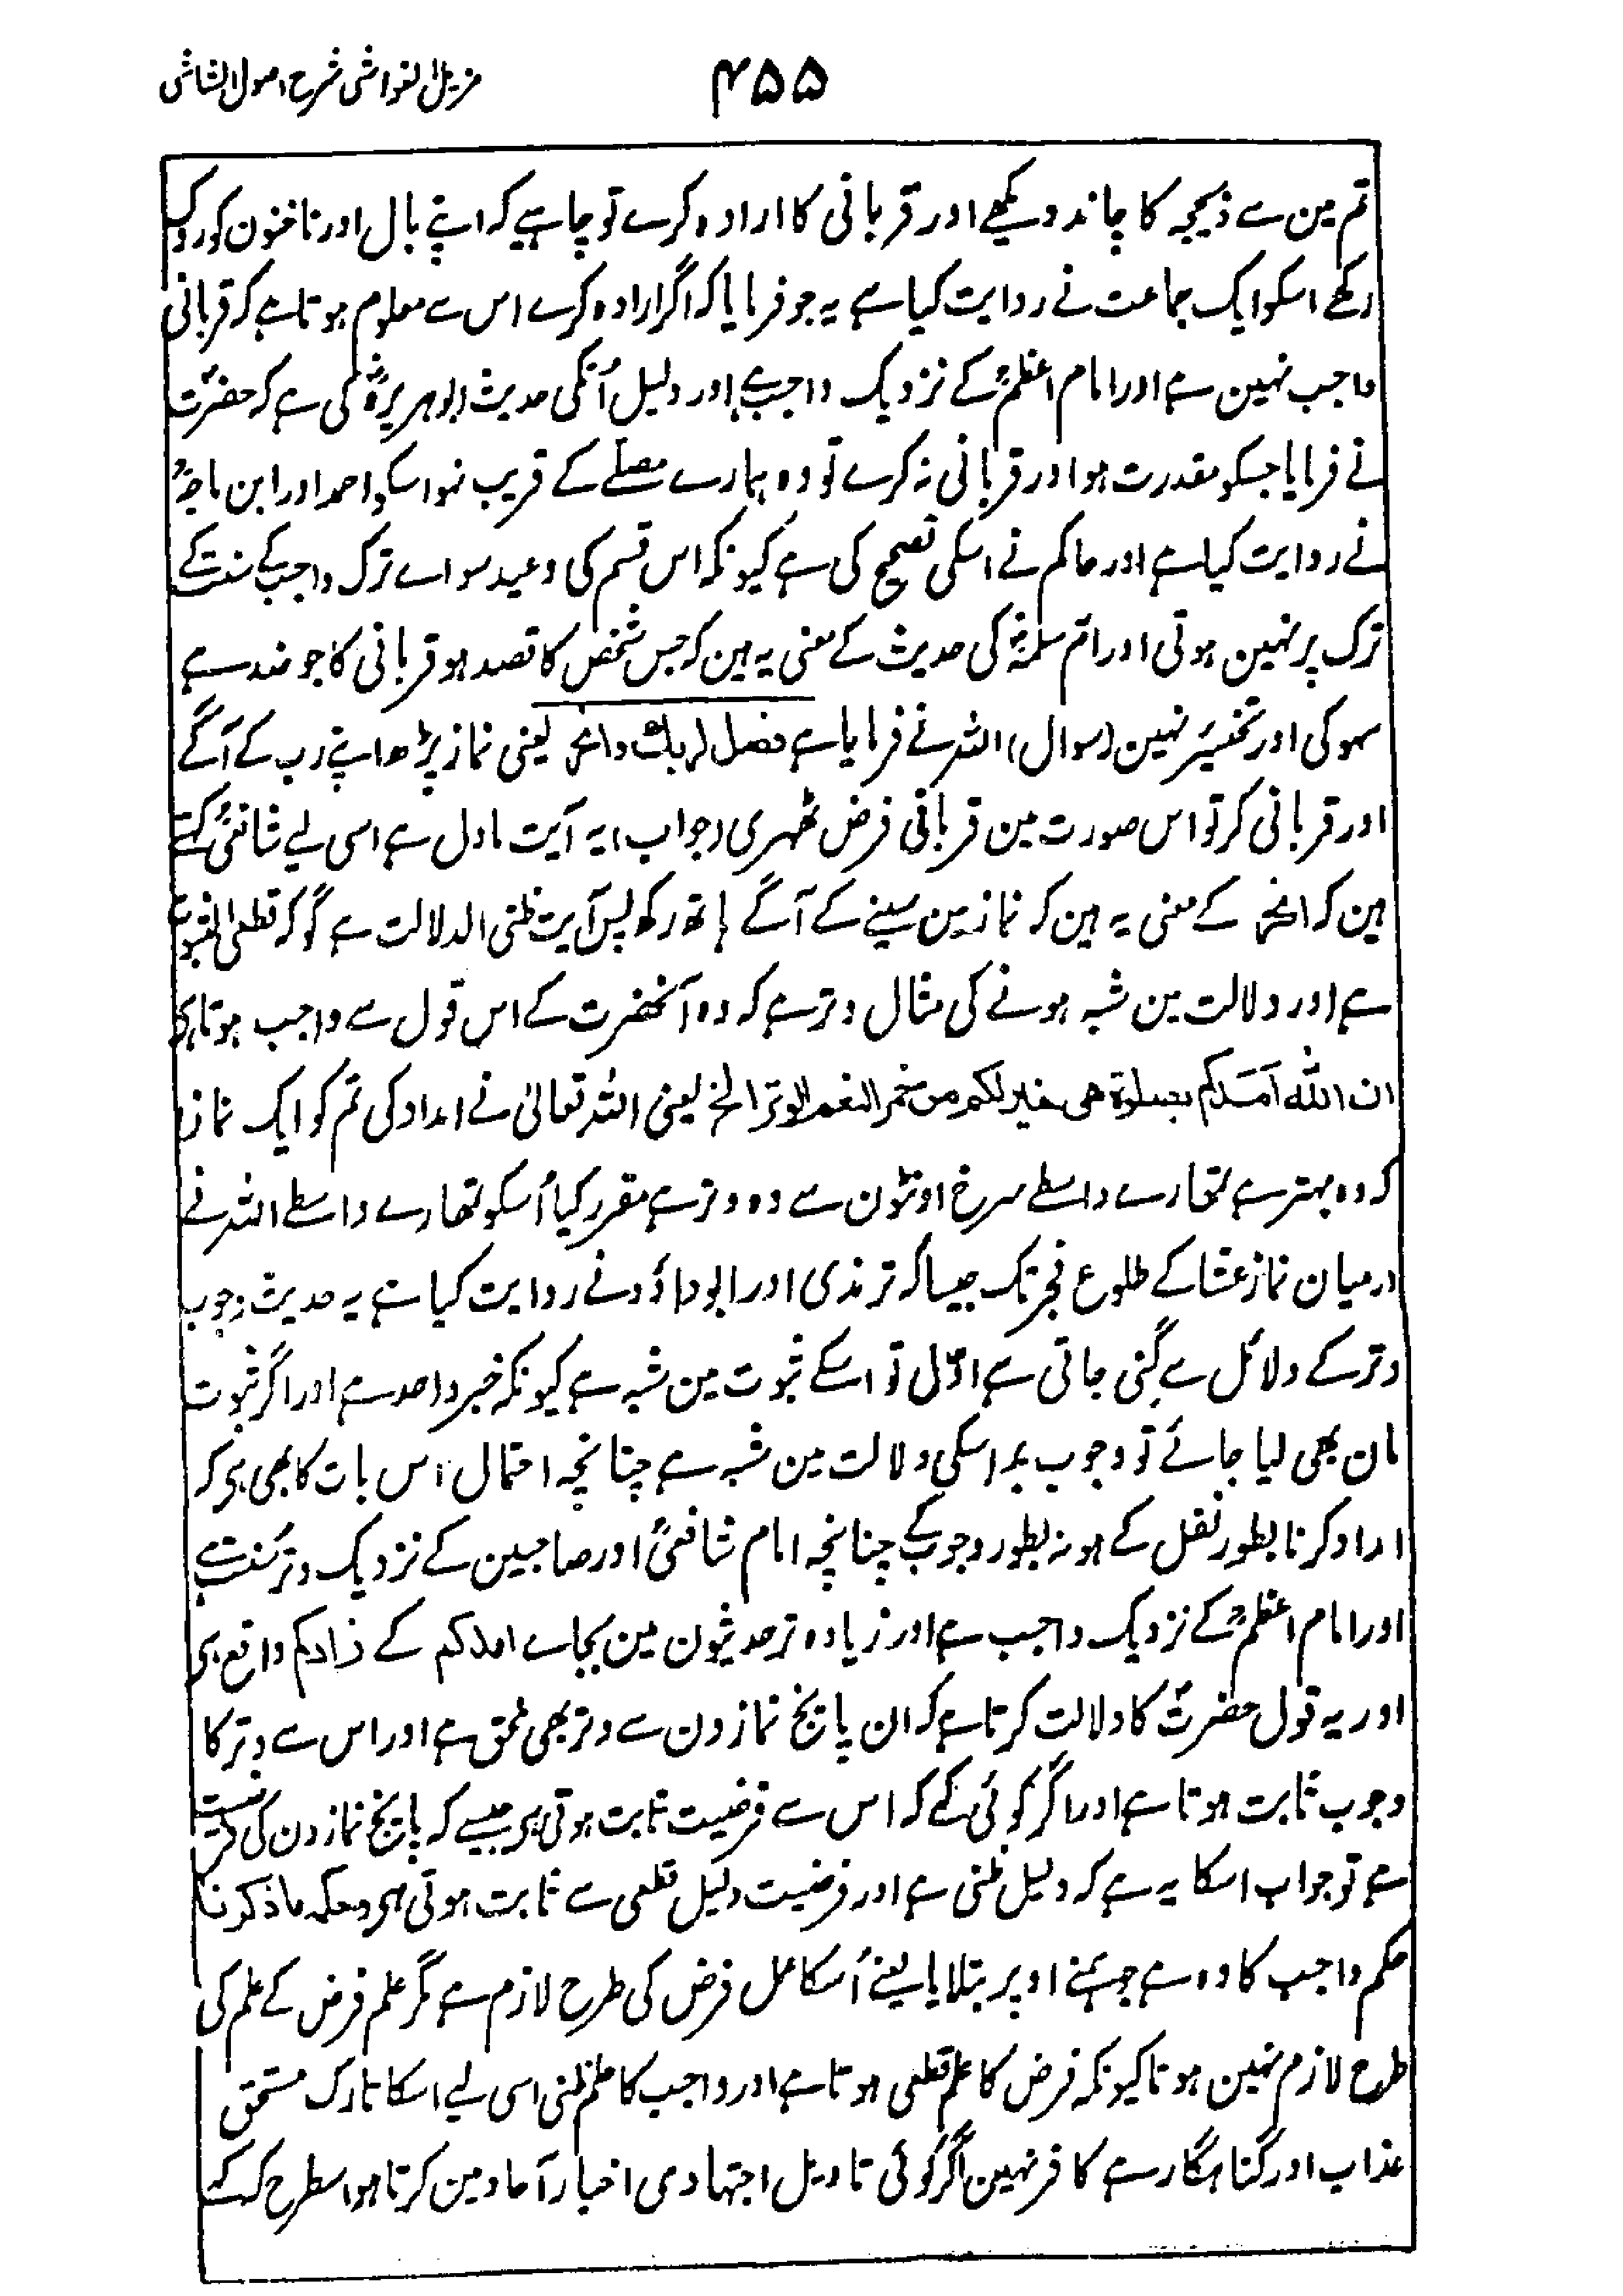 ۴۵۵
مزیل الغواشی شرح اصول الشاشی
تم مین سے ذیحجہ کا چاند دیکھے اور قربانی کا ارادہ کرے تو چاہیے کہ اپنے بال اور ناخنون کو روک
رکھے اسکو ایک جماعت نے روایت کیا ہے یہ جو فرمایا کہ اگر ارادہ کرے اس سے معلوم ہوتا ہے کہ قربانی
واجب نہین ہے اور امام اعظمؒ کے نزدیک واجب ہے اور دلیل اُنکی حدیث ابوہریرہؓ کی ہے کہ حضرتؐ
نے فرمایا جسکو مقدرت ہو اور قربانی نہ کرے تو وہ ہمارے مصلّے کے قریب نہو اسکو احمد اور ابن ماجہؒ
نے روایت کیا ہے اور حاکم نے اسکی تصحیح کی ہے کیونکہ اس قسم کی وعید سواے ترک واجب کے سنت کے
ترک پر نہین ہوتی اور ام سلمہؓ کی حدیث کے معنی یہ ہین کہ جس شخص کا قصد ہو قربانی کا جو ضد ہے
سہو کی اور تخییر نہین (سوال) اللہ نے فرمایا ہے فصل لربك وانحر یعنی نماز پڑھ اپنے رب کے آگے
اور قربانی کر تو اس صورت مین قربانی فرض ٹھہری (جواب) یہ آیت ماول ہے اسی لیے شافعیؒ کہتے
ہین کہ انحر کے معنی یہ ہین کہ نماز مین سینے کے آگے ہاتھ رکھ پس آیت ظنی الدلالت ہے گو کہ قطعی الثبوت
ہے اور دلالت مین شبہ ہونے کی مثال وتر ہے کہ وہ آنحضرت کے اس قول سے واجب ہوتا ہی
ان اللّٰه اَمَدّكم بصلوة هى خير لكم من حمر النعم الوتر الخ یعنی اللہ تعالیٰ نے امداد کی تم کو ایک نماز
کہ وہ بہتر ہے تمھارے واسطے سرخ اونٹون سے وہ وتر ہے مقرر کیا اُسکو تمھارے واسطے اللہ نے
درمیان نماز عشا کے طلوع فجر تک جیسا کہ ترمذی اور ابوداؤد نے روایت کیا ہے یہ حدیث وجوب
وتر کے دلائل سے گنی جاتی ہے اوّل تو اسکے ثبوت مین شبہ ہے کیونکہ خبر واحد ہے اور اگر ثبوت
مان بھی لیا جائے تو وجوب پر اسکی دلالت مین شبہ ہے چنانچہ احتمال اس بات کا بھی ہی کہ
امداد کرنا بطور نفل کے ہو نہ بطور وجوب کے چنانچہ امام شافعیؒ اور صاحبین کے نزدیک وتر سُنت ہے
اور امام اعظمؒ کے نزدیک واجب ہے اور زیادہ تر حدیثون مین بجاے امدکم کے زادکم واقع ہی
اور یہ قول حضرتؐ کا دلالت کرتا ہے کہ ان پانچ نمازون سے وتر بھی ملحق ہے اور اس سے وتر کا
وجوب ثابت ہوتا ہے اور اگر کوئی کہے کہ اس سے فرضیت ثابت ہوتی ہی جیسے کہ پانچ نمازون کی فرضیت
ہے تو جواب اسکا یہ ہے کہ دلیل ظنی ہے اور فرضیت دلیل قطعی سے ثابت ہوتی ہی وحكمه ما ذكرنا
حکم واجب کا وہ ہے جو ہمنے اوپر بتلایا یعنے اُسکا عمل فرض کی طرح لازم ہے مگر علم فرض کے علم کی
طرح لازم نہین ہوتا کیونکہ فرض کا علم قطعی ہوتا ہے اور واجب کا علم ظنی اسی لیے اسکا تارک مستحق
عذاب اور گناہگار ہے کافر نہین اگر کوئی تاویل اجتہادی اخبار آحاد مین کرتا ہو اسطرح کہ کہے